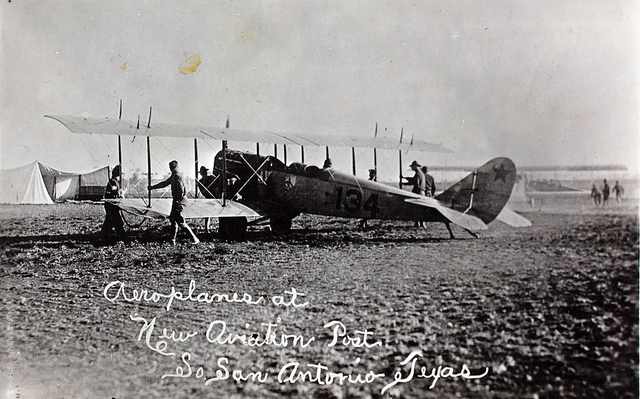 134
Aeroplanes at
New Aviation Post.
So. San Antonio Texas